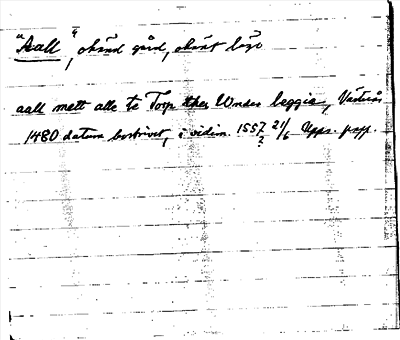 "Aall", okänd gård, okänt läge
aall mett alle te Torp ther Under leggia, Västerås
1480 datum bortrivet, i vidim. 1557 21/6 Upps. papp.
?